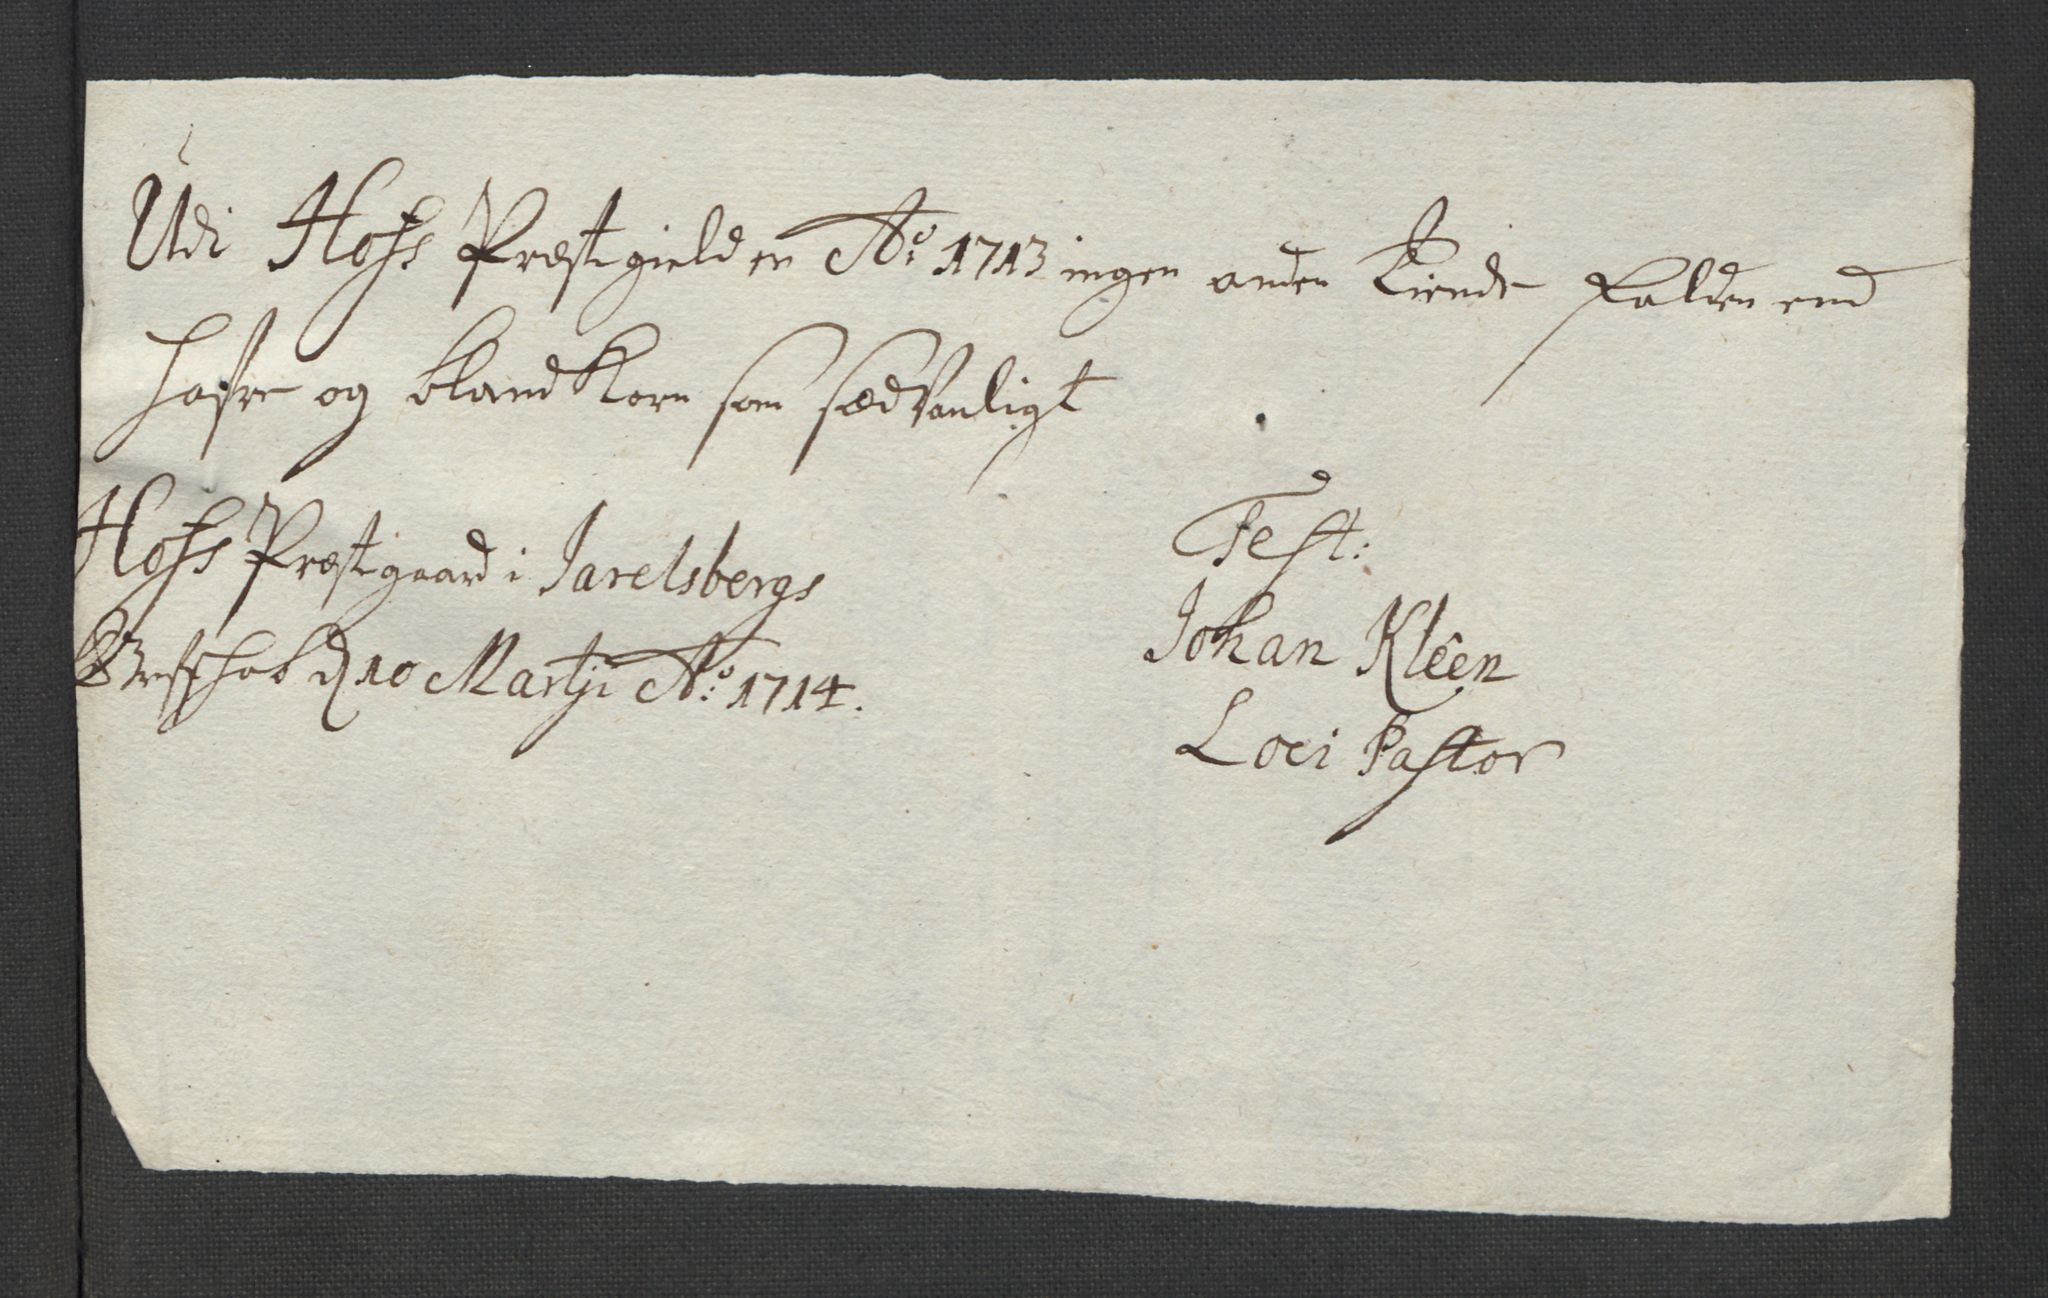 Udi Hofs Præstegield er Ao: 1713 ingen anden Tiende falden end
hafre og blandkorn som sædvanligt
Hofs Præstegaard i Iarelsbergs
Grefschab d 10 Martji Ao: 1714.
Test:
Johan Klêen
Loci Pastor